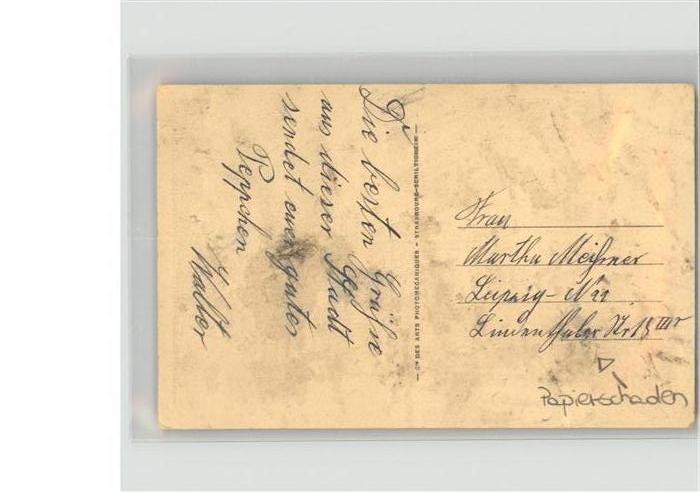 Die besten Grüße
aus dieser Stadt
sendet euer guter
Peppchen
Walter
— Cie DES ARTS PHOTOMECANIQUES - STRASBOURG-SCHILTIGHEIM —
Frau
Martha Meißner
Leipzig - N 22
Lindenthaler Str 13 III r
Papierschaden